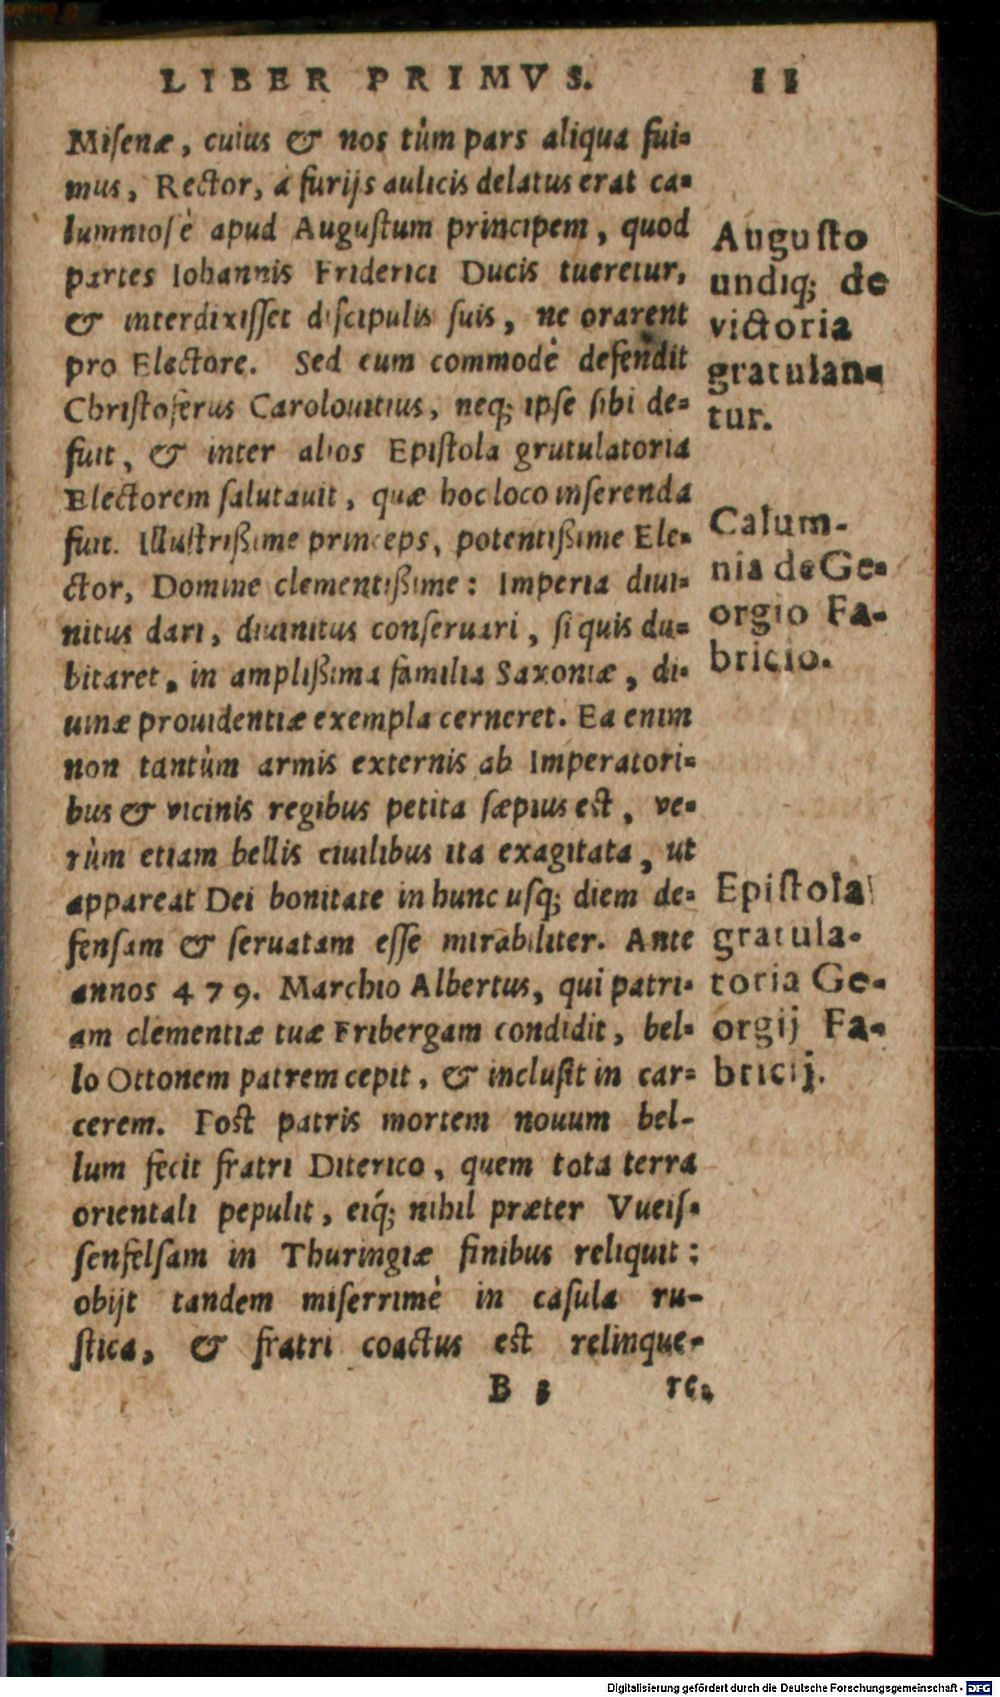 LIBER PRIMVS. 11
Misenæ, cuius & nos tùm pars aliqua fui-
mus, Rector, à furijs aulicis delatus erat ca-
lumniosè apud Augustum principem, quod
partes Iohannis Friderici Ducis tueretur,
& interdixisset discipulis suis, ne orarent
pro Electore. Sed eum commodè defendit
Christoferus Carolouitius, neq; ipse sibi de-
fuit, & inter alios Epistola grutulatoria
Electorem salutauit, quæ hoc loco inserenda
fuit. Illustrißime princeps, potentißime Ele-
ctor, Domine clementißime: Imperia diui-
nitus dari, diuinitus conseruari, si quis du-
bitaret, in amplißima familia Saxoniæ, di-
uinæ prouidentiæ exempla cerneret. Ea enim
non tantùm armis externis ab Imperatori-
bus & vicinis regibus petita sæpius est, ve-
rùm etiam bellis ciuilibus ita exagitata, ut
appareat Dei bonitate in hunc usq; diem de-
fensam & seruatam esse mirabiliter. Ante
annos 479. Marchio Albertus, qui patri-
am clementiæ tuæ Fribergam condidit, bel-
lo Ottonem patrem cepit, & inclusit in car-
cerem. Post patris mortem nouum bel-
lum fecit fratri Diterico, quem tota terra
orientali pepulit, eiq́; nihil præter Vueis-
senfelsam in Thuringiæ finibus reliquit:
obijt tandem miserrimè in casula ru-
stica, & fratri coactus est relinque-
B 3 re,
Augusto
undiq; de
victoria
gratulan-
tur.
Calum-
nia de Ge-
orgio Fa-
bricio.
Epistola
gratula-
toria Ge-
orgij Fa-
bricij.
Digitalisierung gefördert durch die Deutsche Forschungsgemeinschaft - DFG